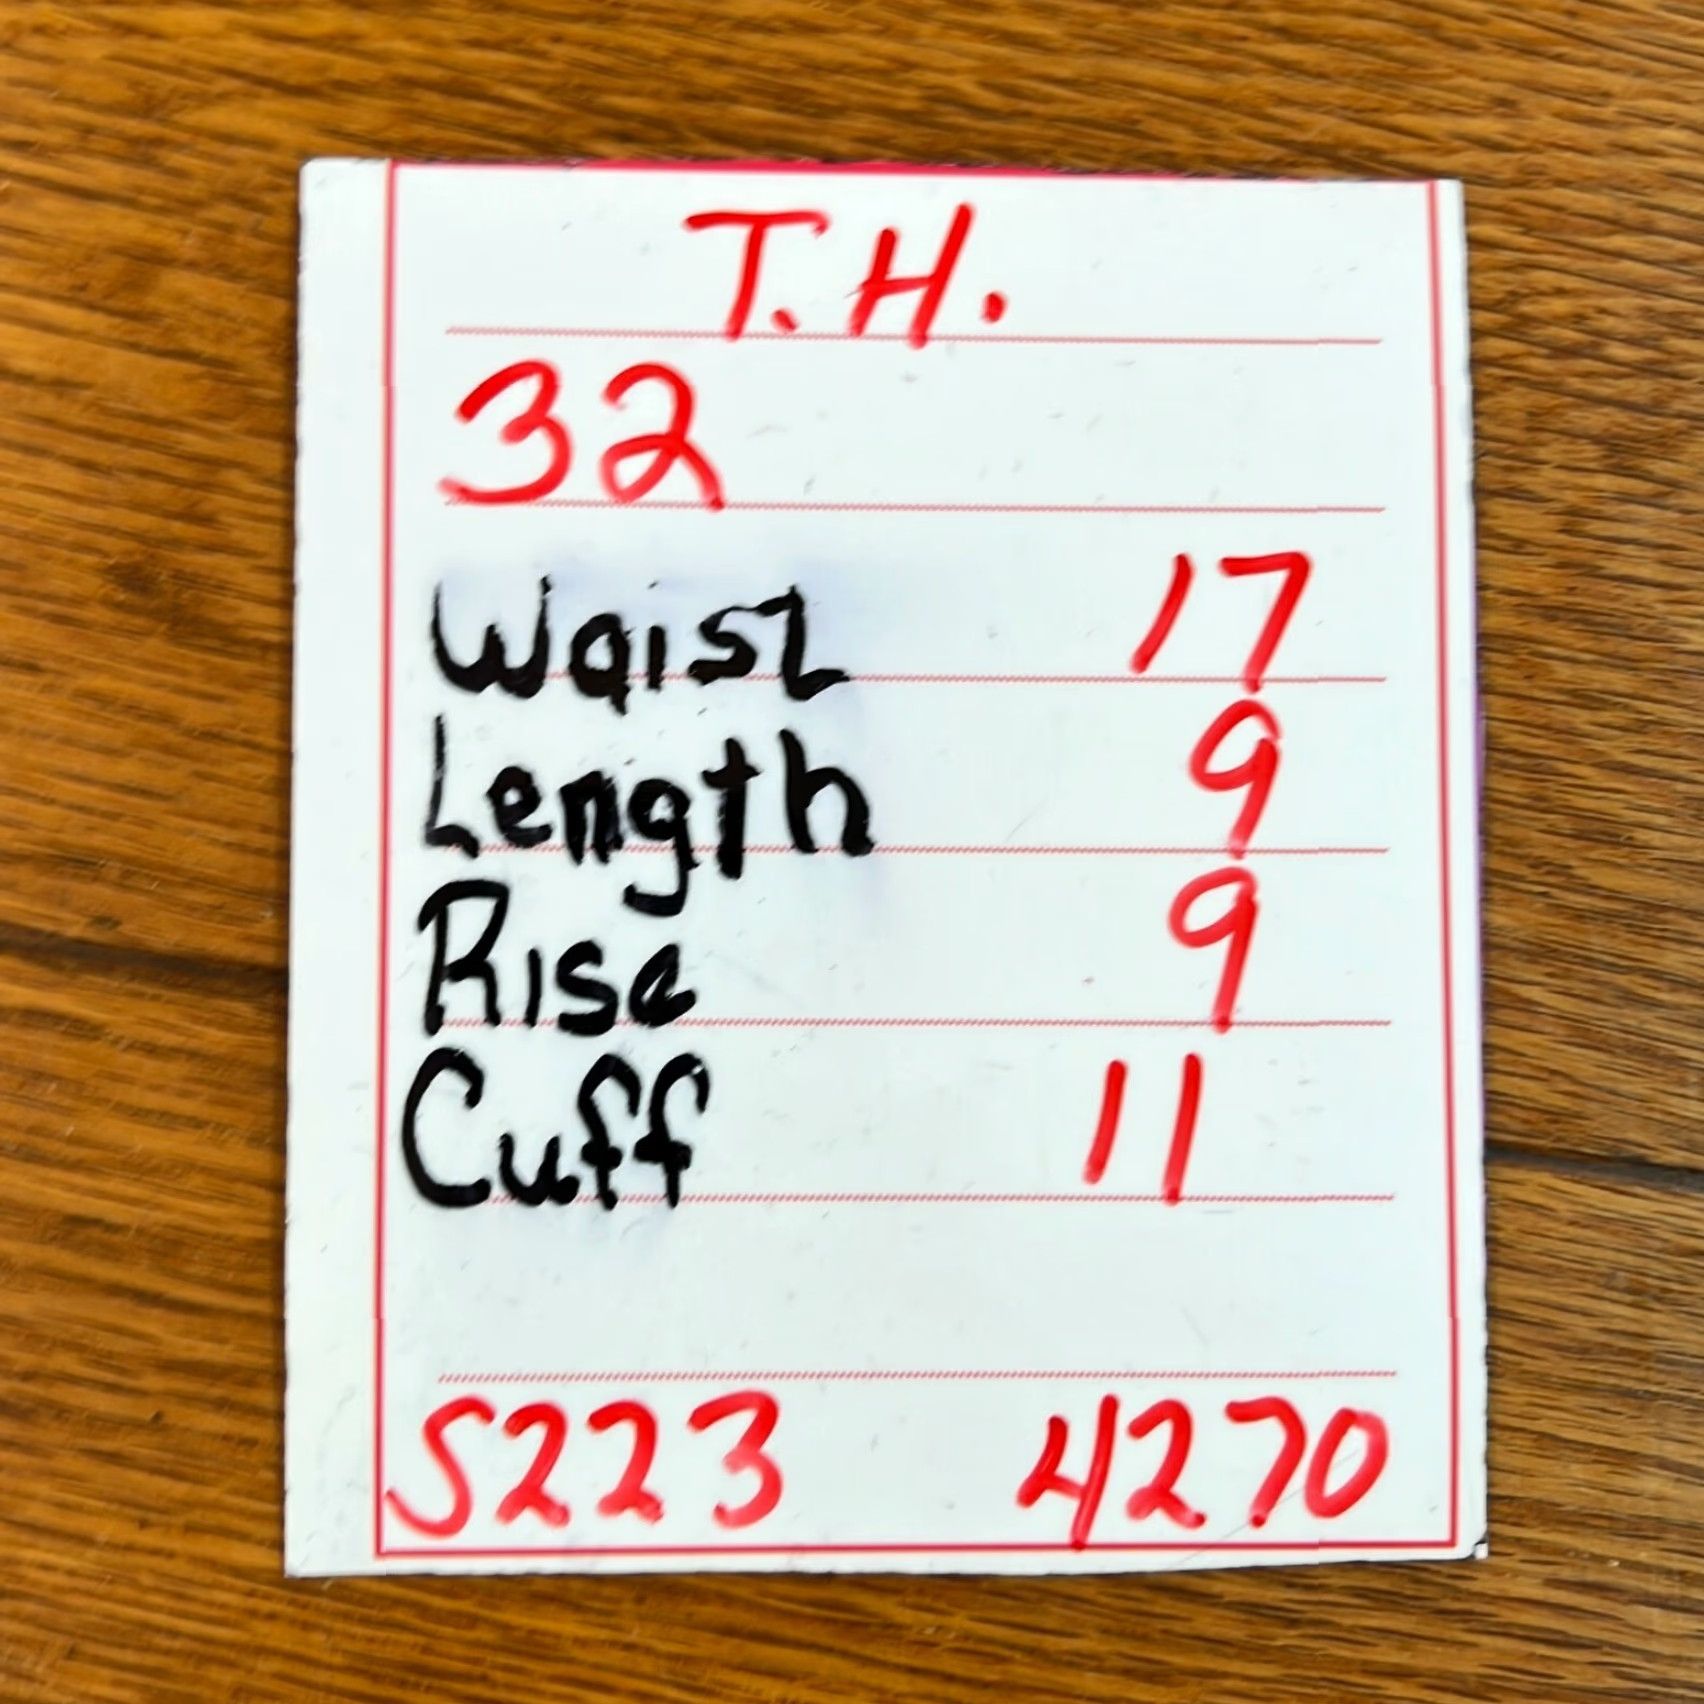 T.H.
32
Waist 17
Length 9
Rise 9
Cuff 11
S223 4270